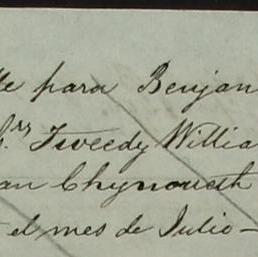 te para Benjan
Srr Tweedy Willia
an Chynoweth
el mes de Julio —